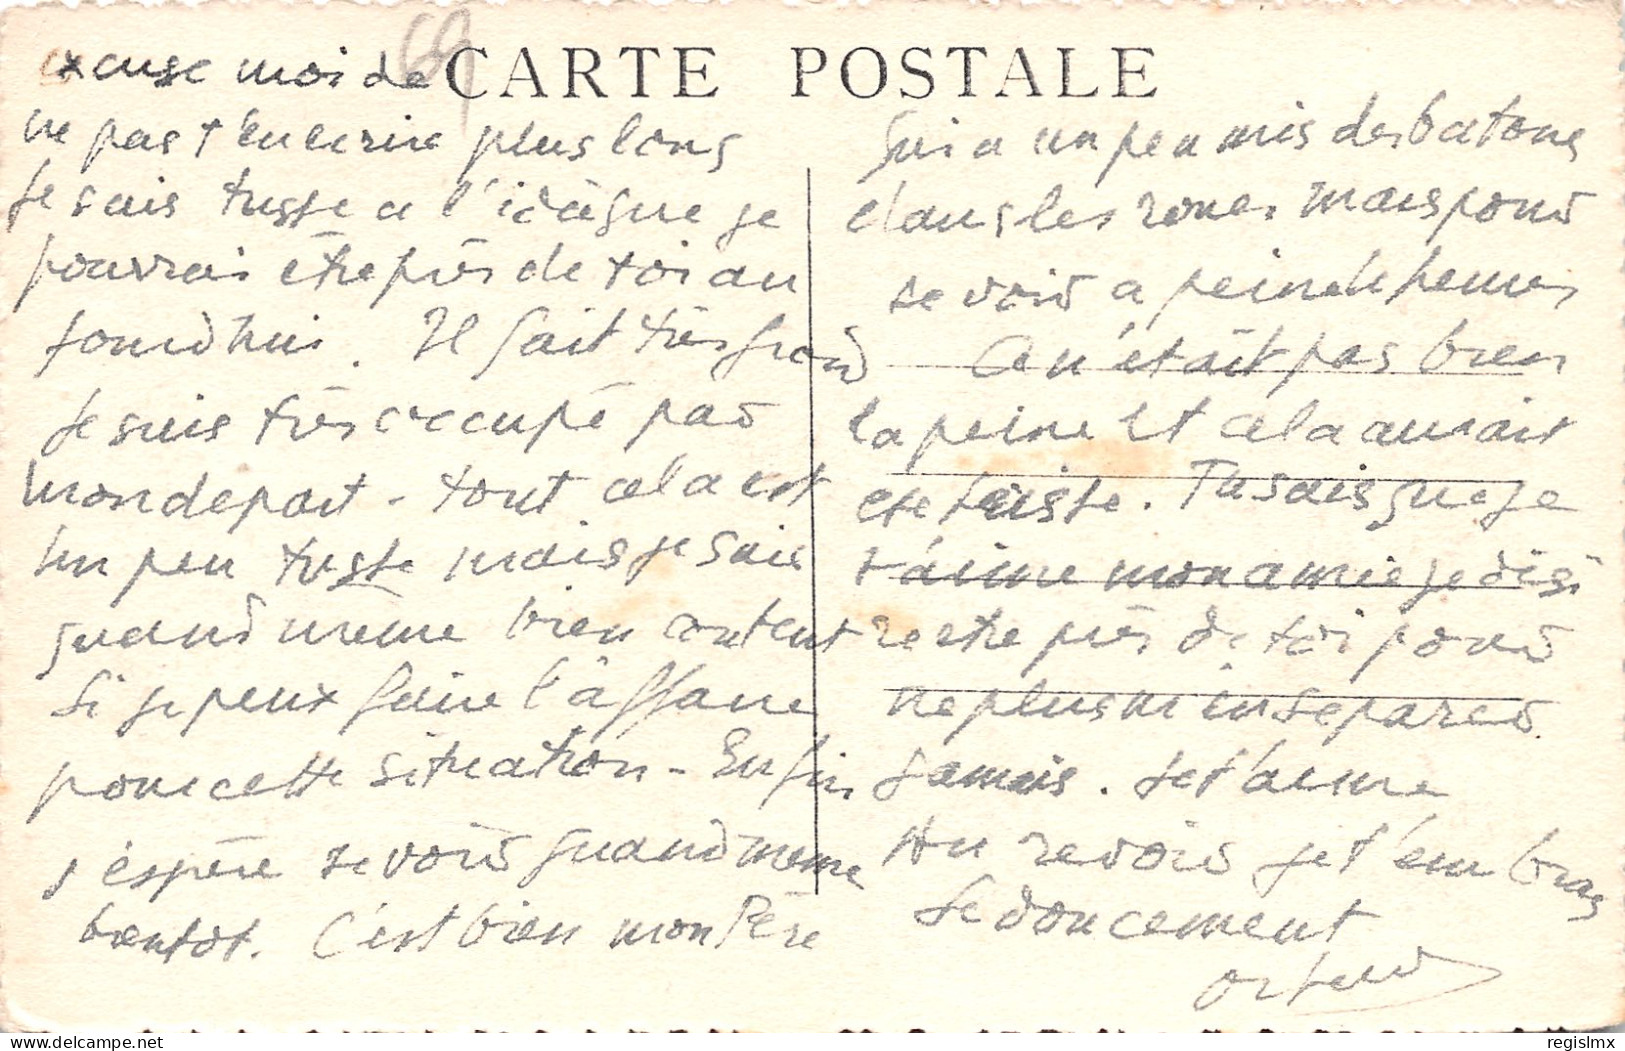 CARTE POSTALE
excuse moi de
ne pas t'en ecrire plus long
Je suis triste a l'idée que je
pourrais être près de toi au
jourdhui. Il fait très froid
Je suis très occupé par
mon depart - tout cela est
un peu triste mais je suis
quand même bien content
si je peux faire l'affaire
pour cette situation - Enfin
j'espère te voir quand meme
bientot. C'est bien mon Père
qui a un peu mis des batons
dans les roues mais pour
te voir a peine heures
Ca n'était pas bien
la peine et cela aurait
ete triste. Tu sais que je
t'aime mon amie je
etre près de toi pour
ne plus m'en separer
jamais. Je t'aime
Au revoir je t'em bras
se doucement
regislmx